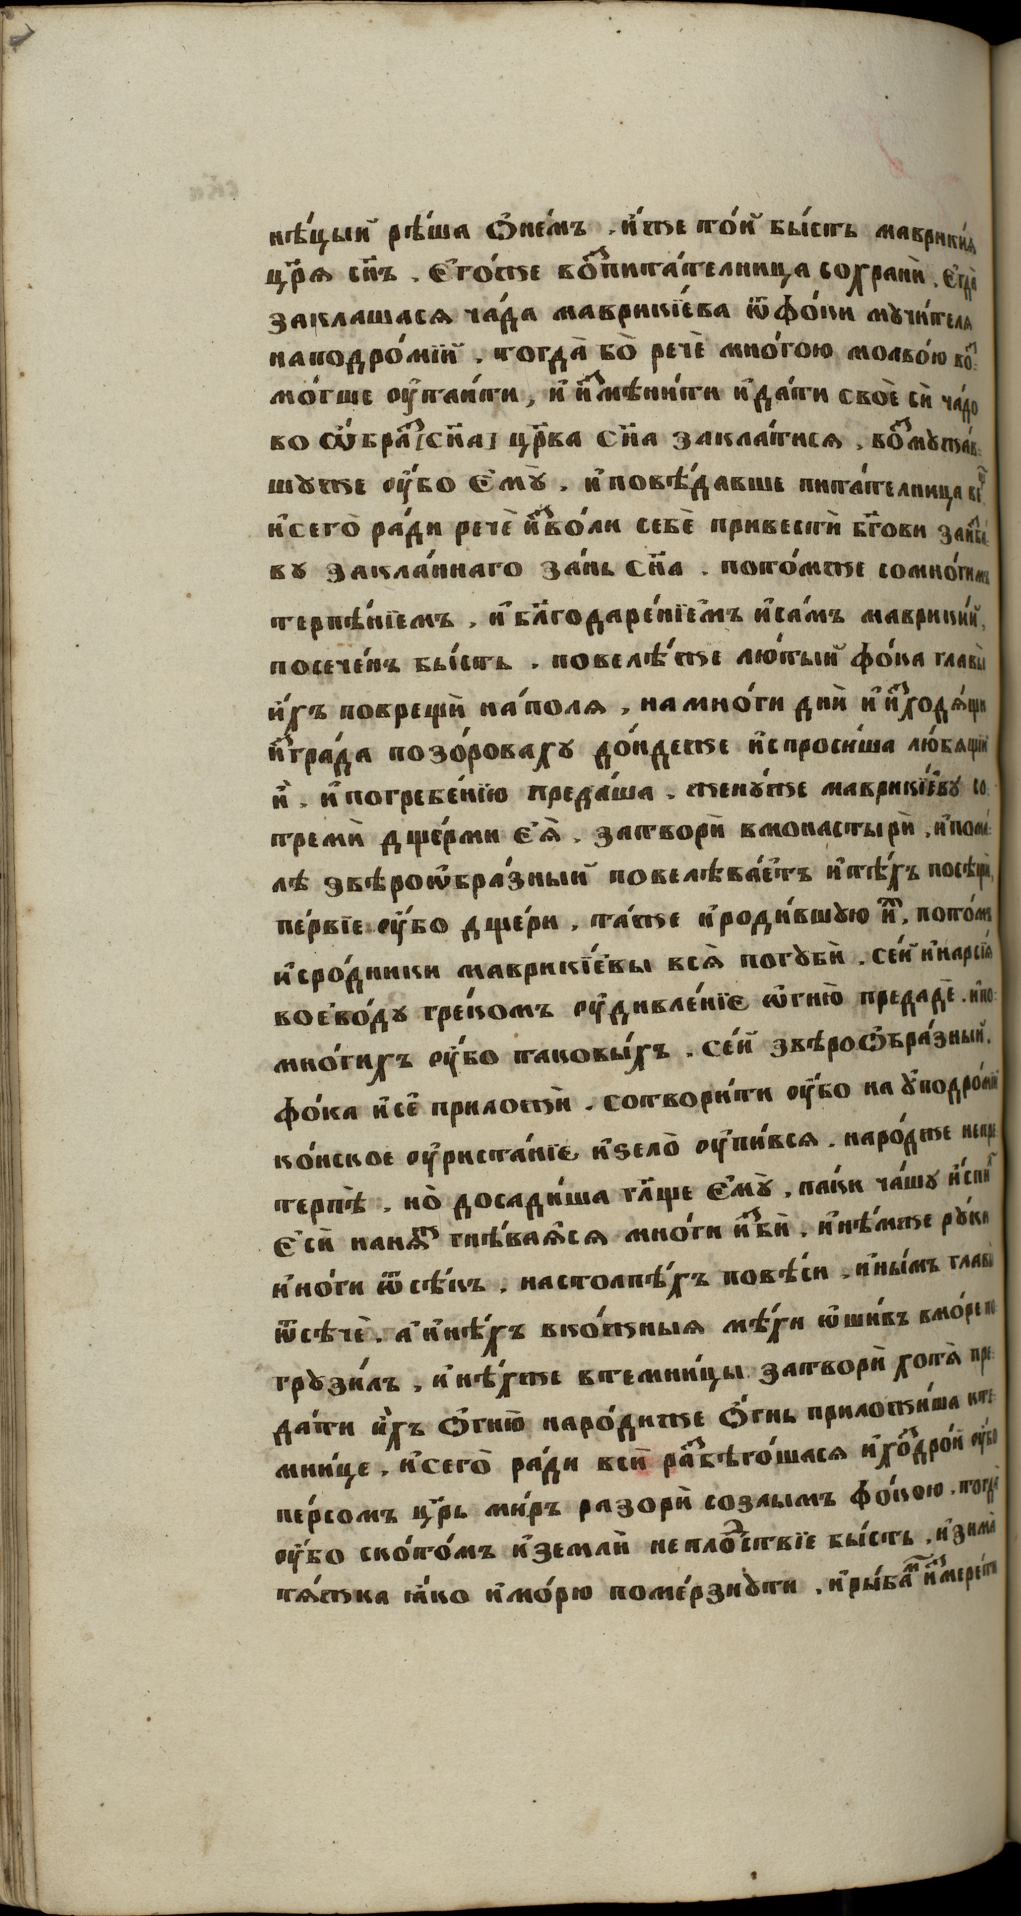 нѣ́цый рѣ́ша ѡ҆не́мъ . и҆́же то́й бы́сть маврикі́я
цр҃ѧ сн҃ъ . є҆го́же вопⷭ҇ита́телница сохранѝ . є҆гда̀
заклашасѧ ча́да маврикі́ева ѿ фо́ки мꙋчи́телѧ
наподро́мїй . тогда̀ бо̀ речѐ мно́гою молво́ю воⷥ
мо́гше ᲂу҆таи́ти , и҆ и҆ⷥмѣни́ти и҆да́ти своѐ сѝ ча́до
во ѡ҆́браⷥ [сн҃а] цр҃ва сн҃а закла́тисѧ . воⷥмꙋжа́в
шꙋже ᲂу҆́бо є҆мꙋ̀ . и҆повѣ́давше пита́телница
и҆сего̀ ра́ди речѐ и҆ⷥво́ли себѐ привестѝ бг҃ови
вꙋ закла́ннаго за́нь сн҃а . пото́мже сомно́гимъ
терпѣ́нїемъ , и҆бл҃годаре́нїемъ и҆са́мъ маврикі́й ,
посече́нъ бы́сть . повелѣ́же лю́тый фо́ка главы̀
и҆́хъ поврещѝ на́полѧ , на мно́ги днѝ и҆ и҆ⷥходѧ́щи
и҆ⷥ гра́да позо́ровахꙋ до́ндеже и҆спроси́ша лю́бѧщїи
и҆̀ . и҆погребе́нїю преда́ша . женꙋ́же маврикі́евꙋ со
тремѝ дще́рми є҆ѧ̀ . затворѝ вмонастырѝ , и҆пома́
лѣ звѣроѡбра́зный повелѣва́етъ и҆тѣ́хъ посѣщѝ ,
пе́рвїе ᲂу҆́бо дще́ри . та́же и҆роди́вшꙋю и҆ⷯ . пото́мъ
и҆сро́дники маврикі́евы всѧ̀ погꙋбѝ . се́й и҆нарсі́ѧ
воево́дꙋ гре́комъ ᲂу҆дивле́нїе ѡ҆гню̀ предадѐ . и҆по
мно́гихъ ᲂу҆́бо таковы́хъ . се́й звѣроѡ҆бра́зный .
фо́ка и҆сѐ приложѝ . сотвори́ти ᲂу҆́бо на ᲂу҆подро́мїи
ко́нское ᲂу҆риста́нїе и҆ѕело̀ ᲂу҆пи́всѧ . наро́дже непре
терпѣ̀ . но̀ досади́ша гл҃ще є҆мꙋ̀ . паки ча́шꙋ и҆спиⷧ
є҆сѝ наню́ⷤ гнѣ́ваѧсѧ мно́ги и҆ⷥбѝ . и҆нѣ́мже рꙋ́ки
и҆но́ги ѿсѣ́къ . настолпѣ́хъ повѣ́си . и҆ны́мъ главы̀
ѿсѣчѐ . а҆и҆нѣ́хъ вко́жныѧ мѣ́хи ѡ҆ши́въ вмо́ре по
грꙋзи́лъ , и҆нѣ́хже втемни́цы затворѝ хотѧ̀ пре
да́ти и҆̀хъ ѡ҆гню̀ наро́диже ѡ҆́гнь приложи́ша кте
мни́це . и҆сего̀ ра́ди всѝ раⷥбѣго́шасѧ и҆хоⷥдро́й ᲂу҆́бо
пе́рсомъ цр҃ь ми́ръ разорѝ созлы́мъ фо́кою . тогда̀
ᲂу҆́бо ското́мъ и҆землѝ непло́ⷣствїе бы́сть . и҆зима̀
тѧ́жка ꙗ҆́ко и҆мо́рю поме́рзнꙋти . и҆ры́баⷨ и҆ⷥмере́ти